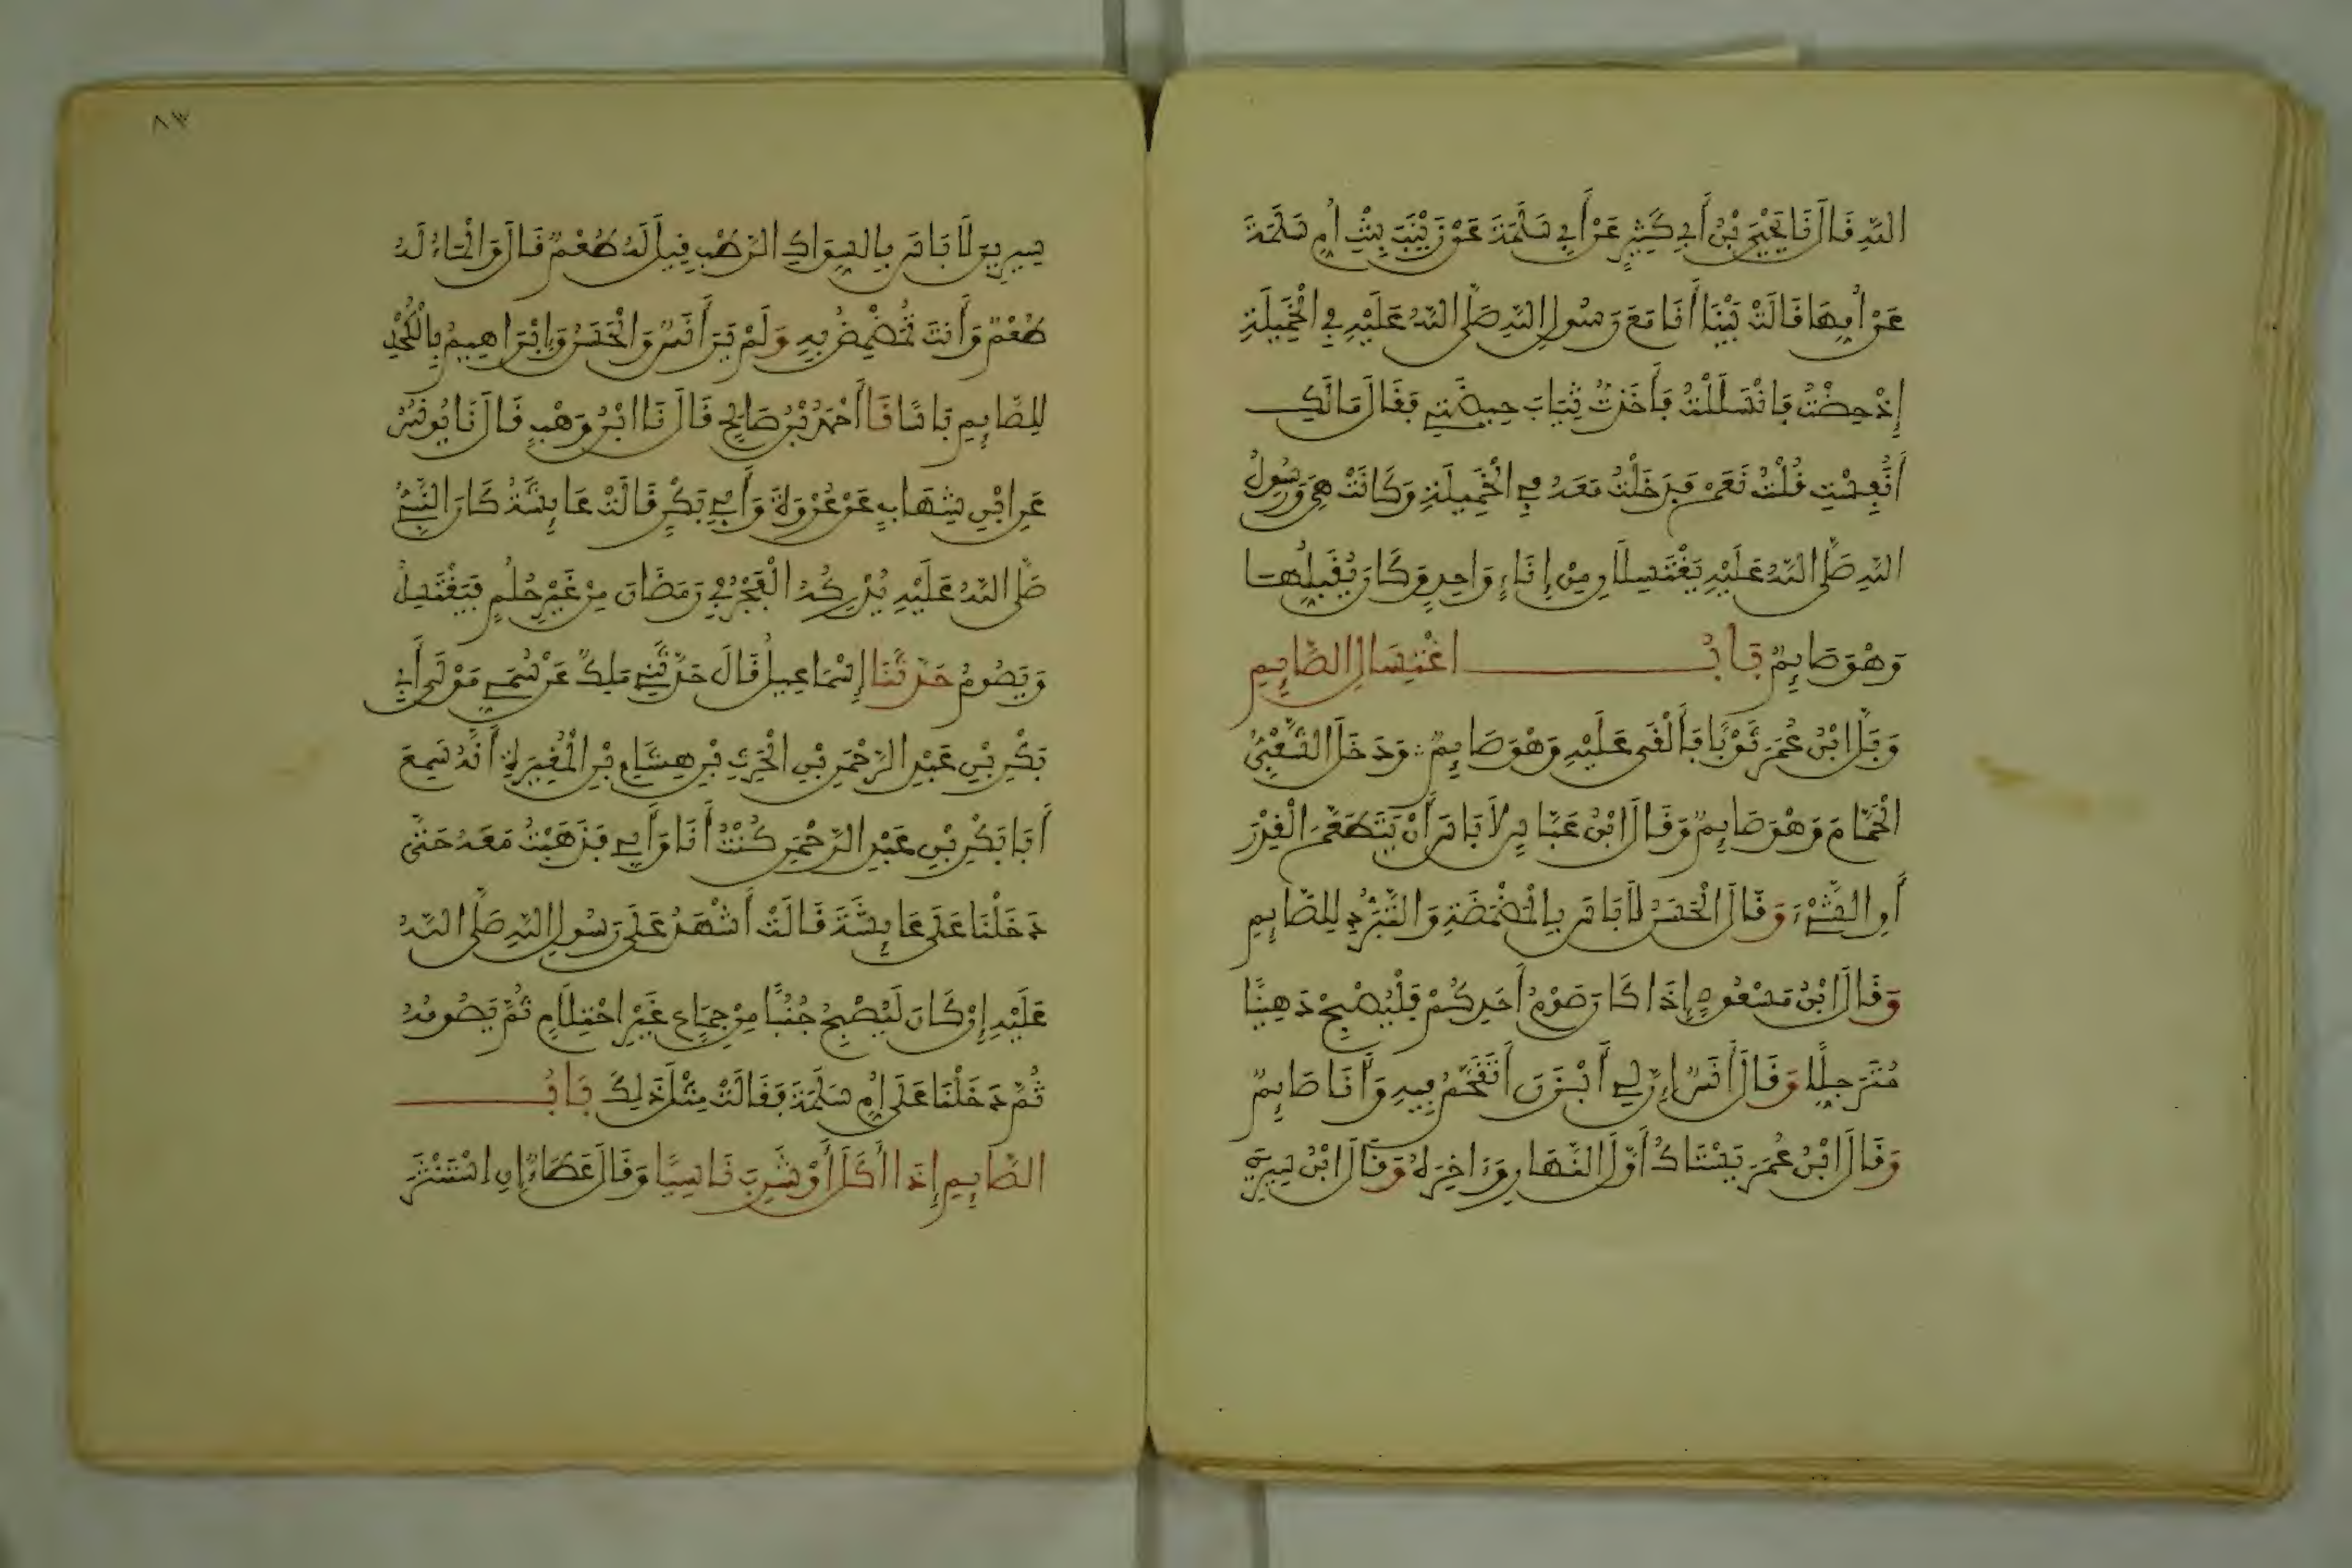 اللَّهِ قَالَ نَا يَحْيَى بْنُ أَبِي كَثِيرٍ عَنْ أَبِي سَلَمَةَ عَنْ زَيْنَبَ بِنْتِ أُمِّ سَلَمَةَ
عَنْ أُمِّهَا قَالَتْ بَيْنَا أَنَا مَعَ رَسُولِ اللَّهِ صَلَّى اللَّهُ عَلَيْهِ فِي الْخَمِيلَةِ
إِذْ حِضْتُ فَانْسَلَلْتُ فَأَخَذْتُ ثِيَابَ حِيضَتِي فَقَالَ مَا لَكِ
أَنُفِسْتِ قُلْتُ نَعَمْ فَدَخَلْتُ مَعَهُ فِي الْخَمِيلَةِ وَكَانَتْ هِيَ وَرَسُولُ
اللَّهِ صَلَّى اللَّهُ عَلَيْهِ يَغْتَسِلَانِ مِنْ إِنَاءٍ وَاحِدٍ وَكَانَ يُقَبِّلُهَا
وَهُوَ صَائِمٌ بَابُ اغْتِسَالِ الصَّائِمِ
وَبَلَّ ابْنُ عُمَرَ ثَوْبًا فَأَلْقَى عَلَيْهِ وَهُوَ صَائِمٌ وَدَخَلَ الشَّعْبِيُّ
الْحَمَّامَ وَهُوَ صَائِمٌ وَقَالَ ابْنُ عَبَّاسٍ لَا بَأْسَ أَنْ يَتَطَعَّمَ الْقِدْرَ
أَوِ الشَّيْءَ وَقَالَ الْحَسَنُ لَا بَأْسَ بِالْمَضْمَضَةِ وَالتَّبَرُّدِ لِلصَّائِمِ
وَقَالَ ابْنُ مَسْعُودٍ إِذَا كَانَ صَوْمُ أَحَدِكُمْ فَلْيُصْبِحْ دَهِينًا
مُتَرَجِّلًا وَقَالَ أَنَسٌ إِنَّ لِي أَبْزَنَ أَتَقَحَّمُ فِيهِ وَأَنَا صَائِمٌ
وَقَالَ ابْنُ عُمَرَ يَسْتَاكُ أَوَّلَ النَّهَارِ وَءَاخِرَهُ وَقَالَ ابْنُ سِيرِينَ
٨٣
سِيرِينَ لَا بَأْسَ بِالسِّوَاكِ الرَّطْبِ قِيلَ لَهُ طُعْمٌ قَالَ وَالْمَاءُ لَهُ
طُعْمٌ وَأَنْتَ تُمَضْمِضُ بِهِ وَلَمْ يَرَ أَنَسٌ وَالْحَسَنُ وَإِبْرَاهِيمُ بِالْكُحْلِ
لِلصَّائِمِ بَأْسًا نَا أَحْمَدُ بْنُ صَالِحٍ قَالَ نَا ابْنُ وَهْبٍ قَالَ نَا يُونُسُ
عَنِ ابْنِ شِهَابٍ عَنْ عُرْوَةَ وَأَبِي بَكْرٍ قَالَتْ عَائِشَةُ كَانَ النَّبِيُّ
صَلَّى اللَّهُ عَلَيْهِ يُدْرِكُهُ الْفَجْرُ فِي رَمَضَانَ مِنْ غَيْرِ حُلُمٍ فَيَغْتَسِلُ
وَيَصُومُ حَدَّثَنَا إِسْمَاعِيلُ قَالَ حَدَّثَنِي مَلِكٌ عَنْ سُمَيٍّ مَوْلَى أَبِي
بَكْرِ بْنِ عَبْدِ الرَّحْمَنِ بْنِ الْحَرِثِ بْنِ هِشَامِ بْنِ الْمُغِيرَةِ أَنَّهُ سَمِعَ
أَبَا بَكْرِ بْنِ عَبْدِ الرَّحْمَنِ كُنْتُ أَنَا وَأَبِي فَذَهَبْتُ مَعَهُ حَتَّى
دَخَلْنَا عَلَى عَائِشَةَ قَالَتْ أَشْهَدُ عَلَى رَسُولِ اللَّهِ صَلَّى اللَّهُ
عَلَيْهِ إِنْ كَانَ لَيُصْبِحُ جُنُبًا مِنْ جِمَاعٍ غَيْرِ احْتِلَامٍ ثُمَّ يَصُومُهُ
ثُمَّ دَخَلْنَا عَلَى أُمِّ سَلَمَةَ فَقَالَتْ مِثْلَ ذَلِكَ بَابُ
الصَّائِمِ إِذَا أَكَلَ أَوْ شَرِبَ نَاسِيًا وَقَالَ عَطَاءٌ إِنِ اسْتَنْثَرَ